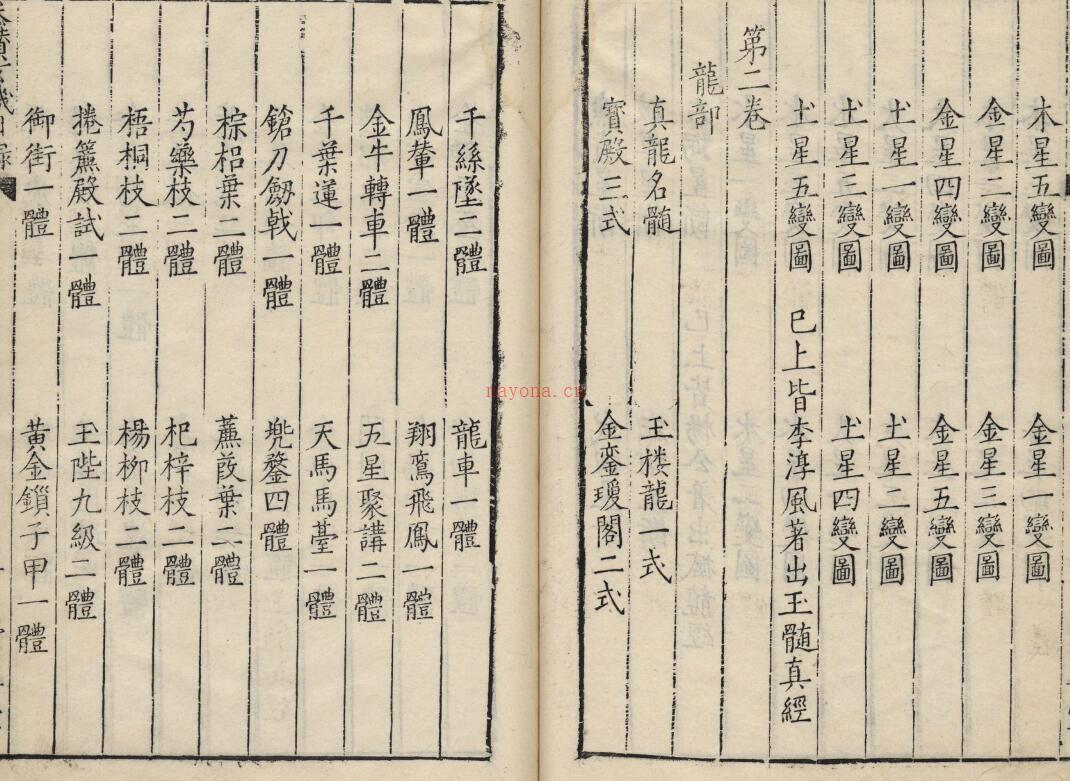 木星五變圖 金星一變圖
金星二變圖 金星三變圖
金星四變圖 金星五變圖
土星一變圖 土星二變圖
土星三變圖 土星四變圖
土星五變圖 已上皆李淳風著出玉髓真經
第二卷
龍部
真龍名髓 玉楼龍一式
寳殿三式 金鑾瓊閣二式
千絲墜二體 龍車一體
鳳輦一體 翔鸞飛鳳一體
金牛轉車二體 五星聚講二體
千葉蓮一體 天馬馬臺一體
鎗刀劔戟一體 兠鍪四體
棕梠葉二體 蕉葉二體
芍藥枝二體 杞梓枝二體
梧桐枝二體 楊柳枝二體
捲簾殿試一體 玉陛九級二體
御街一體 黃金鎖子甲一體
nayona.cn